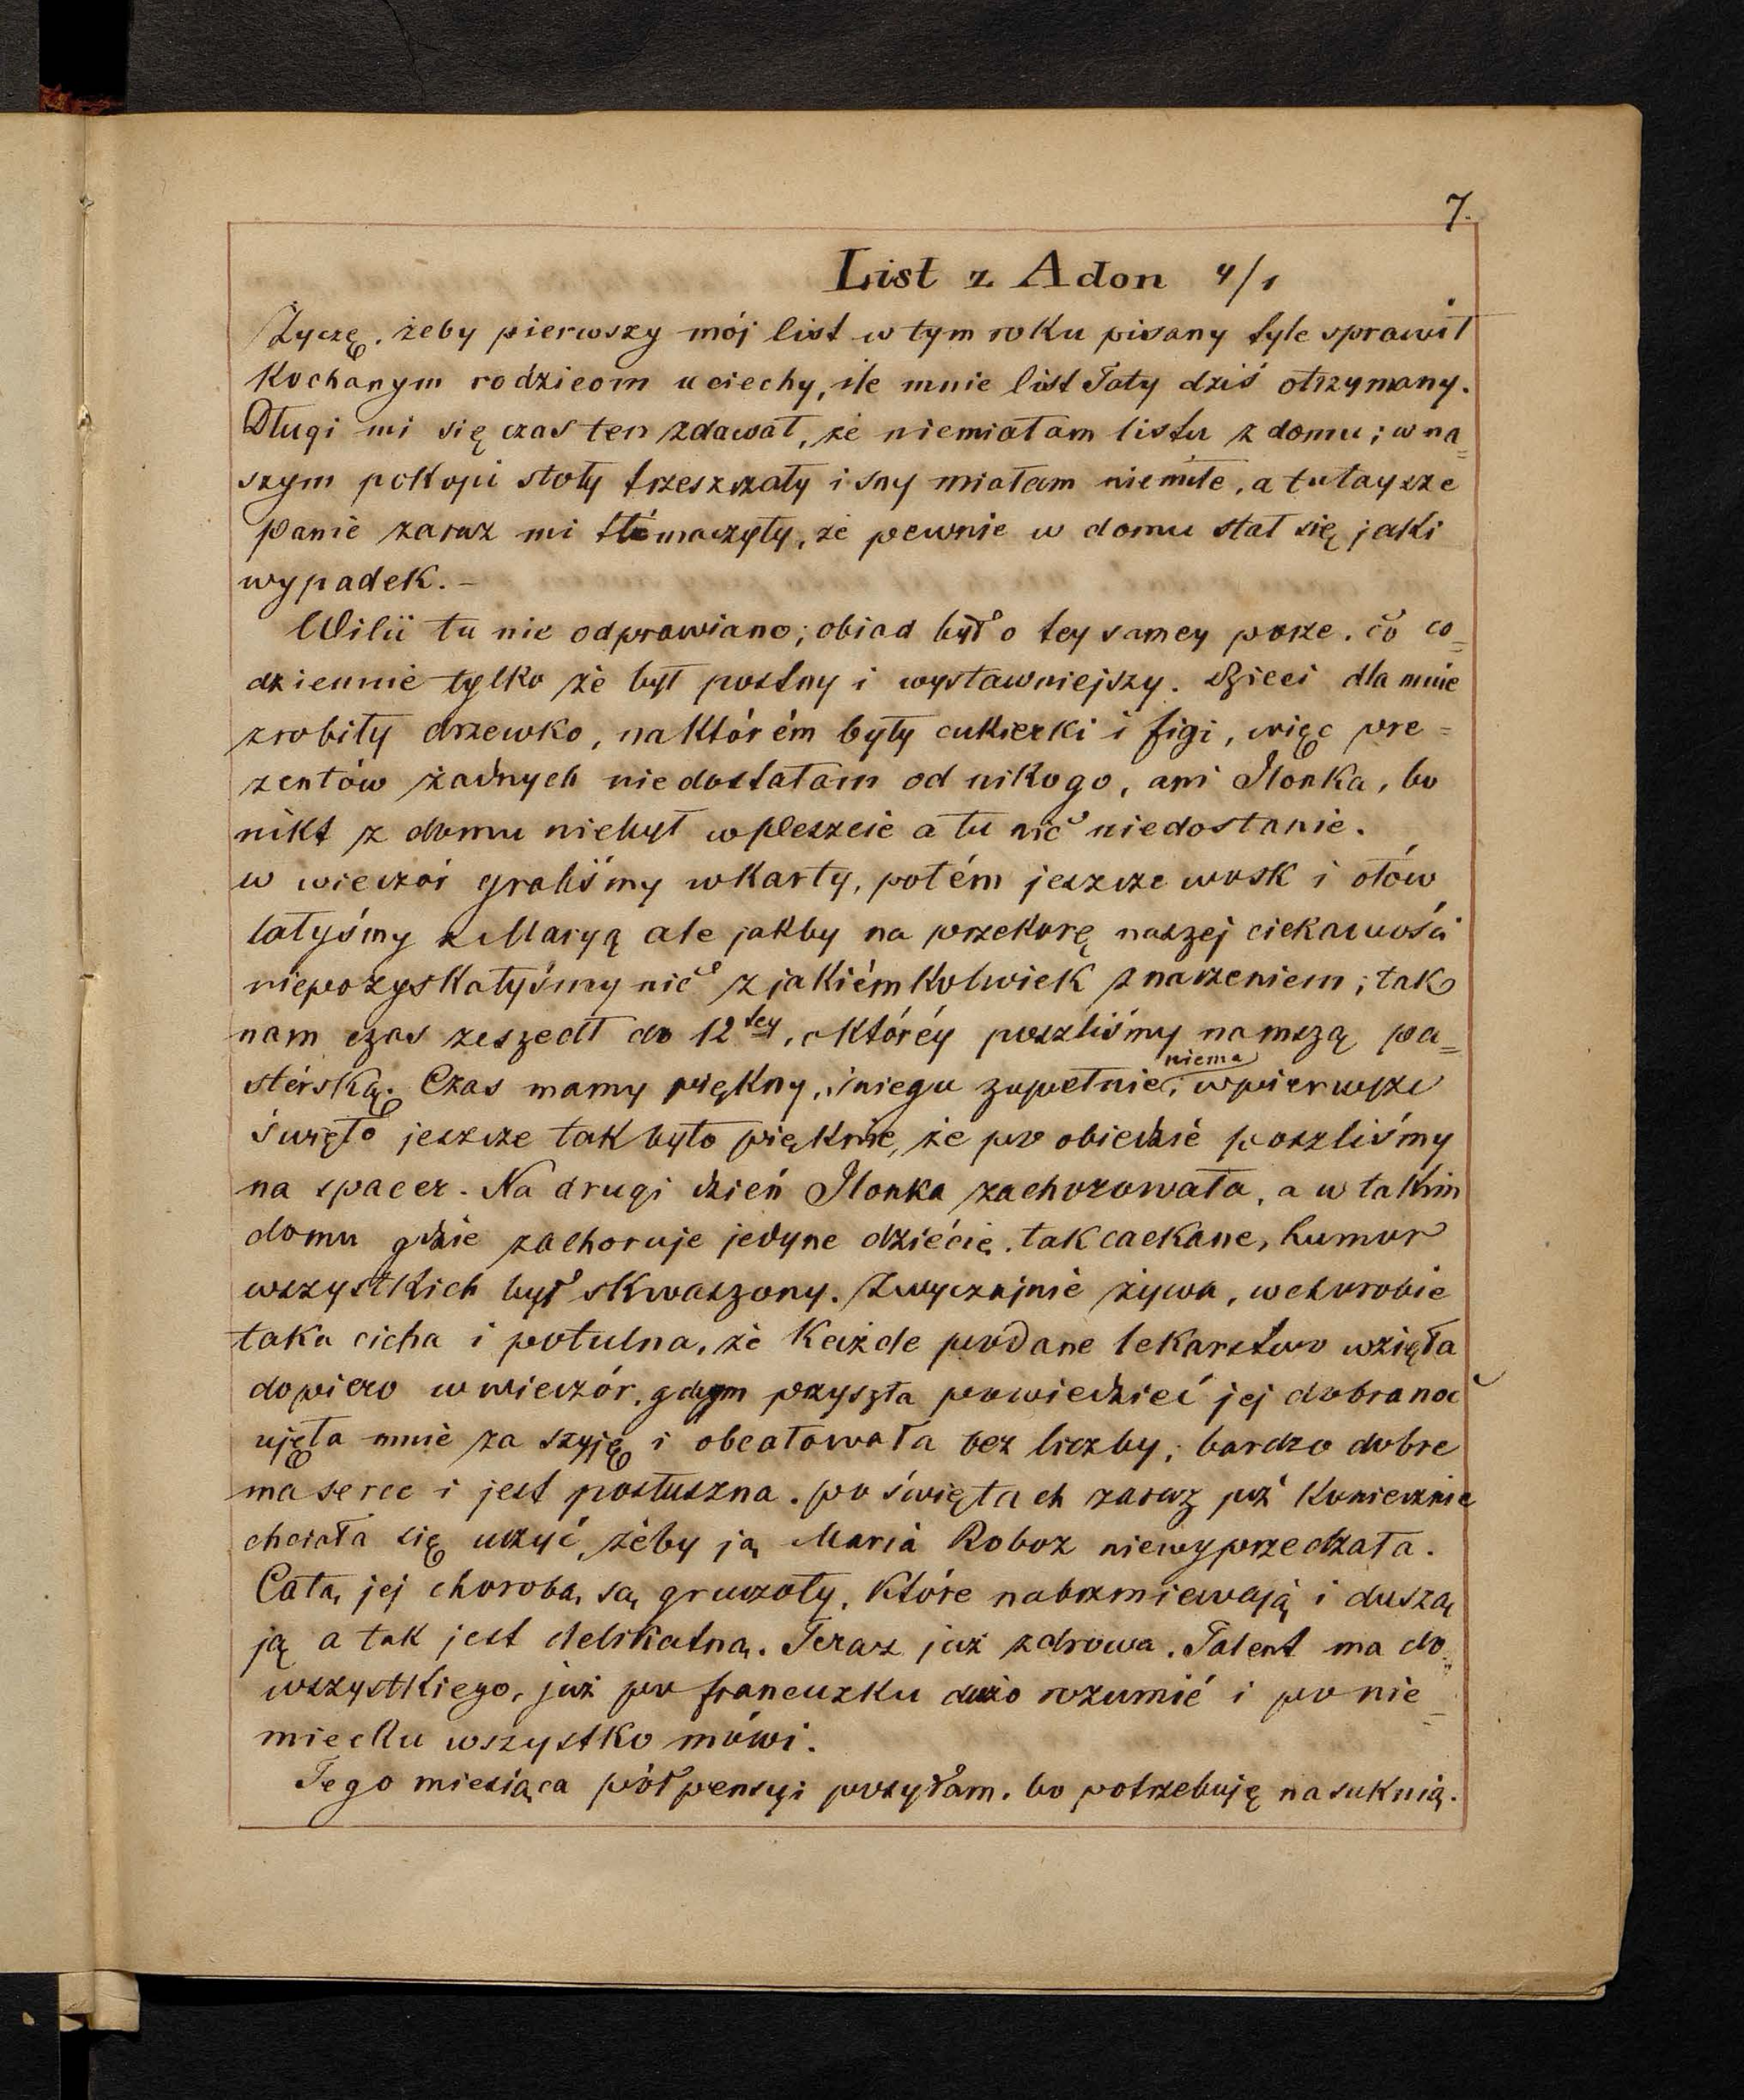 7.
List z Adon 4/1
Życzę, żeby pierwszy mój list w tym roku pisany tyle sprawił
Kochanym rodzicom uciechy, ile mnie list Taty dziś otrzymany.
Długi mi się czas ten zdawał, że niemiałam listu z domu; w na=
szym pokoju stoły trzeszczały i sny miałam niemiłe, a tutaysze
panie zaraz mi tłómaczyły, że pewnie w domu stał się jaki
wypadek. –
Wilii tu nie odprawiano; obiad był o tey samey porze, co co=
dziennie tylko że był postny i wystawniejszy. Dzieci dla mnie
zrobiły drzewko, na którém były cukierki i figi, więc pre=
zentów żadnych niedostałam od nikogo, ani Ilonka, bo
nikt z domu niebył w Peszcie a tu nic niedostanie.
w wieczór graliśmy w karty, potém jeszcze wosk i ołów
lałyśmy z Maryą ale jakby na przekorę naszej ciekawości
niepozyskałyśmy nic z jakiémkolwiek znaczeniem; tak
nam czas zeszedł do 12tey, o któréy poszliśmy na mszą pa=
stérską. Czas mamy piękny, śniegu zupełnie niema; w pierwsze
święto jeszcze tak było pięknie, że po obiedzie poszliśmy
na spacer. Na drugi dzień Ilonka zachorowała, a w takim
domu gdzie zachoruje jedyne dziécię, tak cackane, humor
wszystkich był skwaszony. Zwyczajnie żywa, w chorobie
taka cicha i potulna, że każde podane lekarstwo wzięła
dopiero w wieczór, gdym przyszła powiedzieć jej dobranoc
ujęła mnie za szyję i obcałowała bez liczby; bardzo dobre
ma serce i jest posłuszna. po świętach zaraz już koniecznie
chciała się uczyć, żeby ją Maria Roboz niewyprzedzała.
Całą jej chorobą są gruczoły, które nabrzmiewają i duszą
ją a tak jest delikatną. Teraz już zdrowa. Talent ma do
wszystkiego, już po francuzku dużo rozumié i po nie=
miecku wszystko mówi.
Tego miesiąca pół pensyi posyłam, bo potrzebuję na suknią.